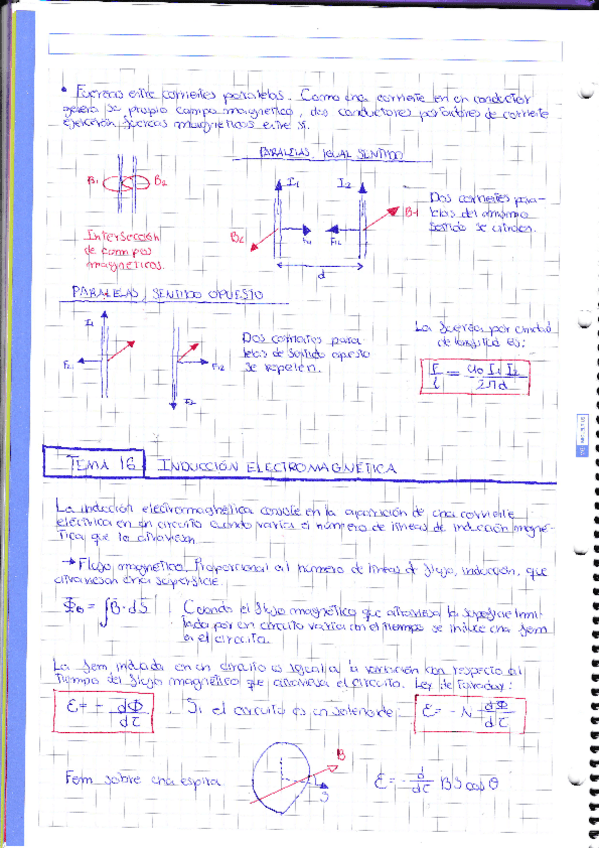 • Fuerzas entre corrientes paralelas. Como una corriente en un conductor
genera su propio campo magnético, dos conductores portadores de corriente
ejercerán fuerzas magnéticas entre sí.
PARALELAS, IGUAL SENTIDO
B₁ B₂
I₁ I₂
B₁
Dos corrientes para-
lelas del mismo
sentido se atraen.
Intersección
de campos
magnéticos.
B₂
F₂₁ F₁₂
d
PARALELAS, SENTIDO OPUESTO
I₁
F₂₁
F₁₂
I₂
Dos corrientes para-
lelas de sentido opuesto
se repelen.
La fuerza por unidad
de longitud es:
F/l = μ₀ I₁ I₂ / 2πd
TEMA 16 INDUCCIÓN ELECTROMAGNÉTICA
La inducción electromagnética consiste en la aparición de una corriente
eléctrica en un circuito cuando varía el número de líneas de inducción magné-
tica que lo atraviesan
→ Flujo magnético. Proporcional al número de líneas de flujo, inducción, que
atraviesan una superficie.
Φ = ∫B·dS
Cuando el flujo magnético que atraviesa la superficie limi-
tada por un circuito varía con el tiempo se induce una fem
en el circuito.
La fem inducida en un circuito es igual a la variación con respecto al
tiempo del flujo magnético que atraviesa el circuito. Ley de Faraday:
ε = - dΦ/dt . Si el circuito es un solenoide ε = - N dΦ/dt
Fem sobre una espira
B
S
ε = - d/dt BS cos θ